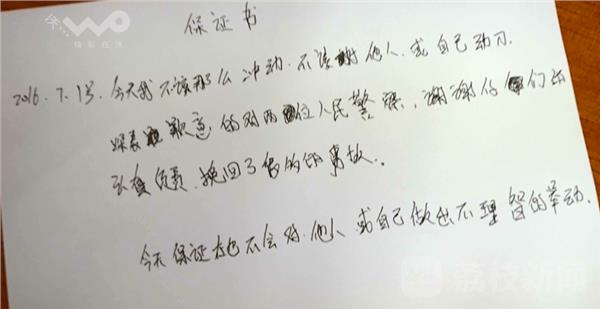 WO
精彩在沃
保证书
2016.7.1号.今天我不该那么冲动.不该对他人.或自己动刀.
深表歉意的对两位人民警察,谢谢你们的
负责.挽回了我的事故.
今天保证在也不会对.他人或自己做出不理智的举动.
荔枝新闻